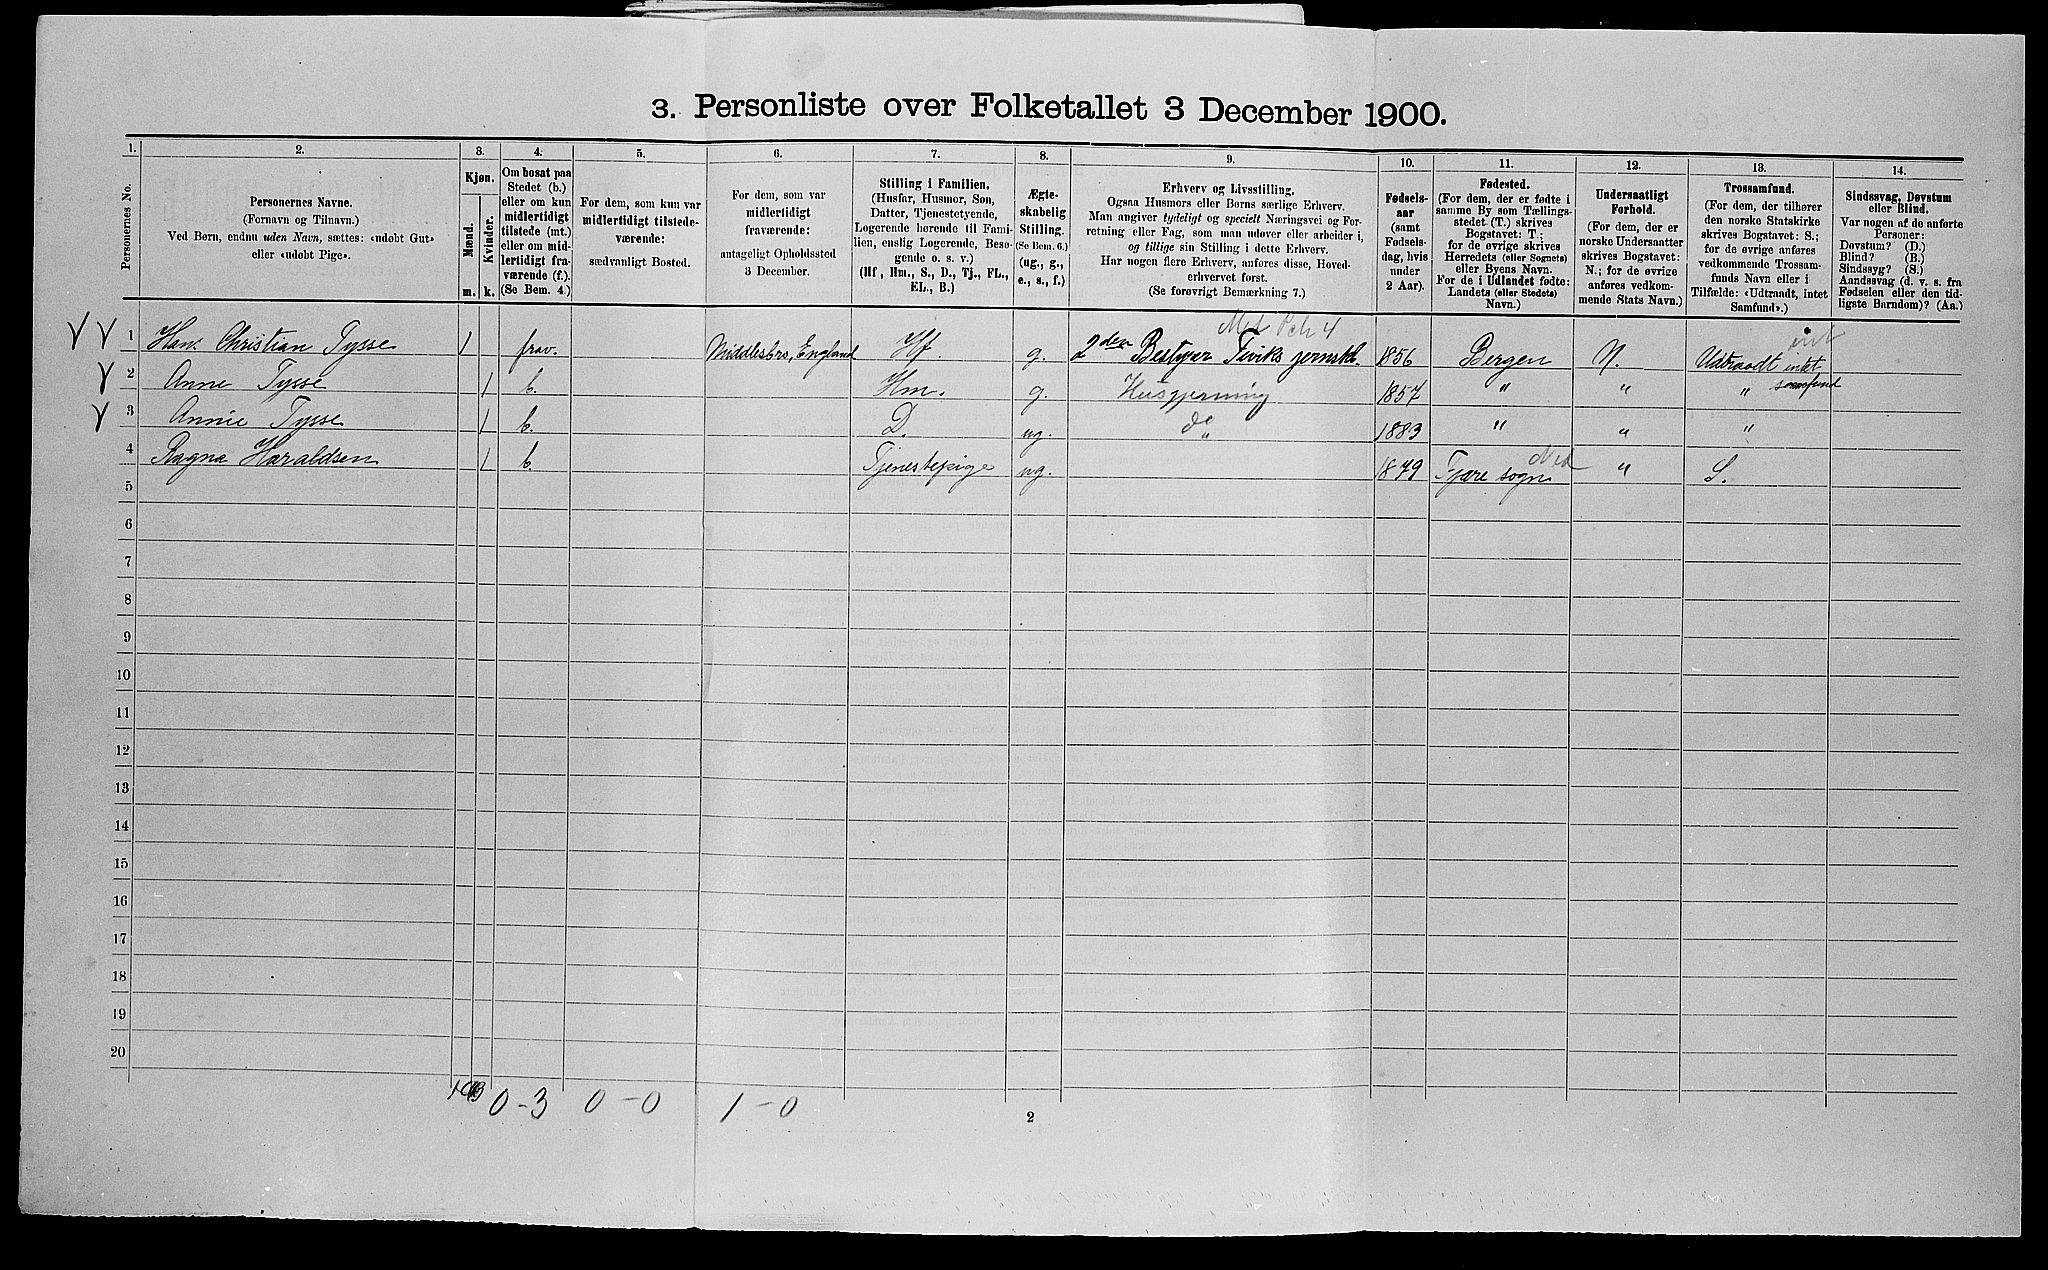 3. Personliste over Folketallet 3 December 1900.
1. 2. 3. 4. 5. 6. 7. 8. 9. 10. 11. 12. 13. 14.
Personernes No.
Personernes Navne.
(Fornavn og Tilnavn.)
Ved Børn, endnu uden Navn, sættes: «udøbt Gut»
eller «udøbt Pige».
Kjøn.
Mænd.
Kvinder.
m. k.
Om bosat paa
Stedet (b.)
eller om kun
midlertidigt
tilstede (mt.)
eller om mid-
lertidigt fra-
værende (f.).
(Se Bem. 4.)
For dem, som kun var
midlertidigt tilstede-
værende:
sædvanligt Bosted.
For dem, som var
midlertidigt
fraværende:
antageligt Opholdssted
3 December.
Stilling i Familien.
(Husfar, Husmor, Søn,
Datter, Tjenestetyende,
Logerende hørende til Fami-
lien, enslig Logerende, Besø-
gende o. s. v.)
(Hf, Hm., S., D., Tj., FL.,
EL., B.)
Ægte-
skabelig
Stilling.
(Se Bem. 6.)
(ug., g.,
e., s., f.)
Erhverv og Livsstilling.
Ogsaa Husmors eller Børns særlige Erhverv.
Man angiver tydeligt og specielt Næringsvei og For-
retning eller Fag, som man udøver eller arbeider i,
og tillige sin Stilling i dette Erhverv.
Har nogen flere Erhverv, anføres disse, Hoved-
erhvervet først.
(Se forøvrigt Bemærkning 7.)
Fødsels-
aar
(samt
Fødsels-
dag, hvis
under
2 Aar).
Fødested.
(For dem, der er fødte i
samme By som Tællings-
stedet (T.) skrives
Bogstavet: T.;
for de øvrige skrives
Herredets (eller Sognets)
eller Byens Navn.
For de i Udlandet fødte:
Landets (eller Stedets)
Navn.)
Undersaatligt
Forhold.
(For dem, der er
norske Undersaatter
skrives Bogstavet:
N.; for de øvrige
anføres vedkom-
mende Stats Navn.)
Trossamfund.
(For dem, der tilhører
den norske Statskirke
skrives Bogstavet: S.;
for de øvrige anføres
vedkommende Trossam-
funds Navn eller i
Tilfælde: «Udtraadt, intet
Samfund».)
Sindssvag, Døvstum
eller Blind.
Var nogen af de anførte
Personer:
Døvstum? (D.)
Blind? (B.)
Sindssyg? (S.)
Aandssvag (d. v. s. fra
Fødselen eller den tid-
ligste Barndom)? (Aa.)
1 Hans Christian Tysse 1 frav. Middlesbro, England Hf g. 2den Bestyrer Tviks jernstb. 1856 Bergen N. Udtraadt intet
2 Anne Tysse 1 b. Hm. g. Husgjerning 1857 " " " samfund
3 Annie Tysse 1 b. D. ug. do " 1883 " " "
4 Ragna Haraldsen 1 b. Tjenestepige ug. 1879 Tjøre sogn " S.
5
6
7
8
9
10
11
12
13
14
15
16
17
18
19
20
0-3 0-0 1-0
2